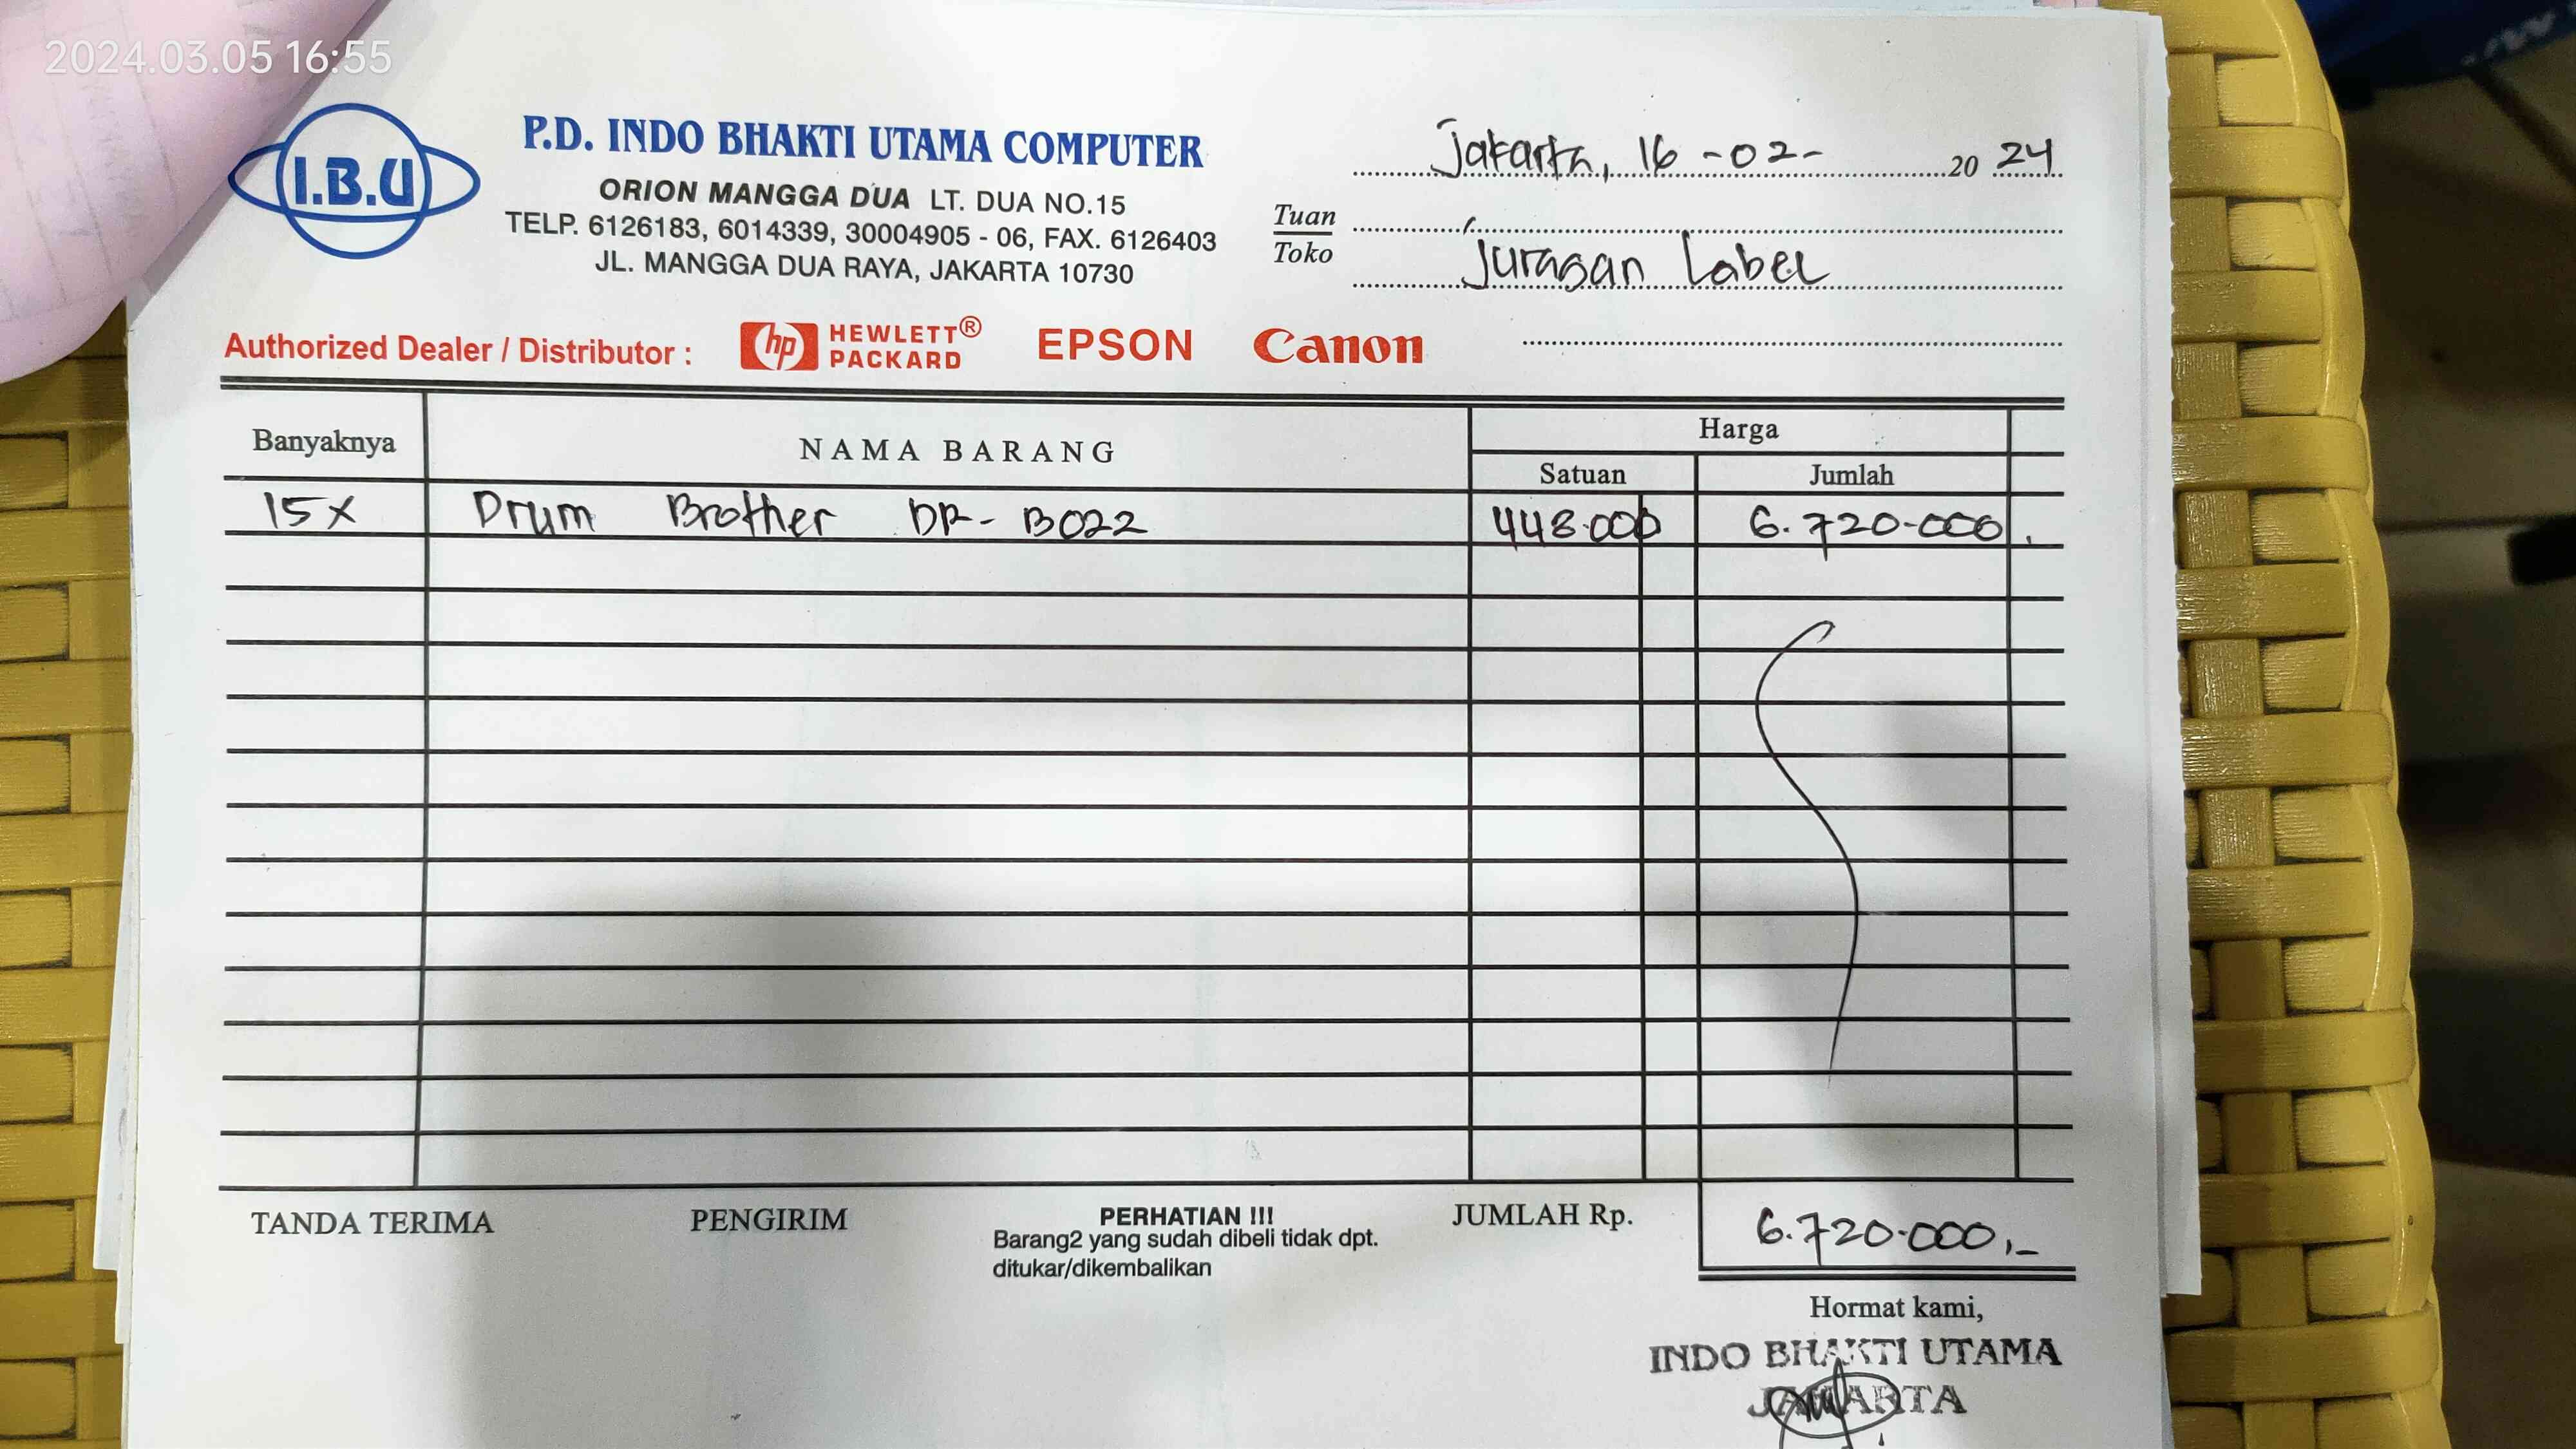 2024.03.05 16:55
I.B.U
P.D. INDO BHAKTI UTAMA COMPUTER
ORION MANGGA DUA LT. DUA NO.15
TELP. 6126183, 6014339, 30004905 - 06, FAX. 6126403
JL. MANGGA DUA RAYA, JAKARTA 10730
Jakarta, 16 -02- 20 24
Tuan
Toko
Juragan Label
Authorized Dealer / Distributor : hp HEWLETT® PACKARD EPSON Canon
Banyaknya NAMA BARANG Harga
Satuan Jumlah
15X Drum Brother DR- B022 448.000 6.720.000
TANDA TERIMA PENGIRIM PERHATIAN !!! JUMLAH Rp. 6.720.000,-
Barang2 yang sudah dibeli tidak dpt.
ditukar/dikembalikan
Hormat kami,
INDO BHAKTI UTAMA
JAKARTA